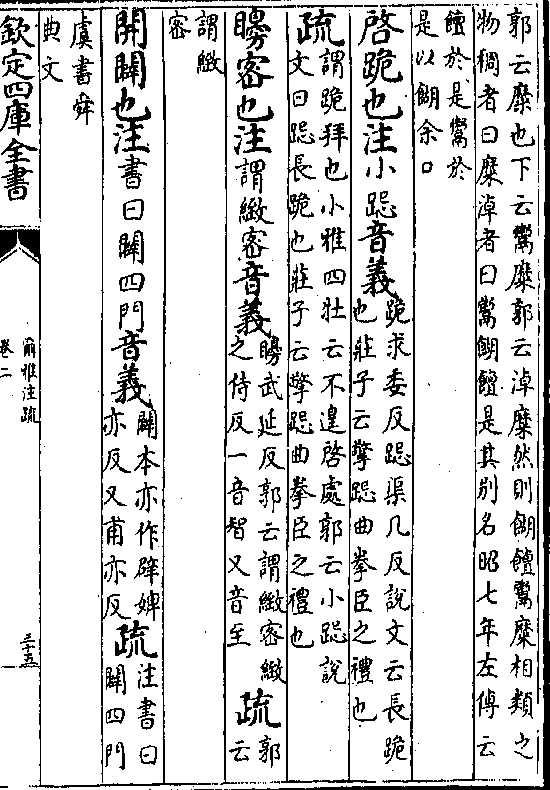 郭云糜也下云鬻糜郭云淖糜然則餬饘鬻糜相類之
物稠者曰糜淖者曰鬻餬饘是其别名昭七年左傳云
饘於是鬻於
是以餬余口
啓跪也注小跽音義跪求委反跽渠几反說文云長跪
也莊子云擎跽曲拳臣之禮也
疏謂跪拜也小雅四牡云不遑啓處郭云小跽說
文曰跽長跪也莊子云擎跽曲拳臣之禮也
矊密也注謂緻密音義矊武延反郭云謂緻密緻
之侍反一音智又音至疏郭云
謂緻
密
開闢也注書曰闢四門音義闢本亦作辟婢
亦反又甫亦反疏注書曰
闢四門
虞書舜
典文
欽定四庫全書
爾雅注疏
卷二
三十五